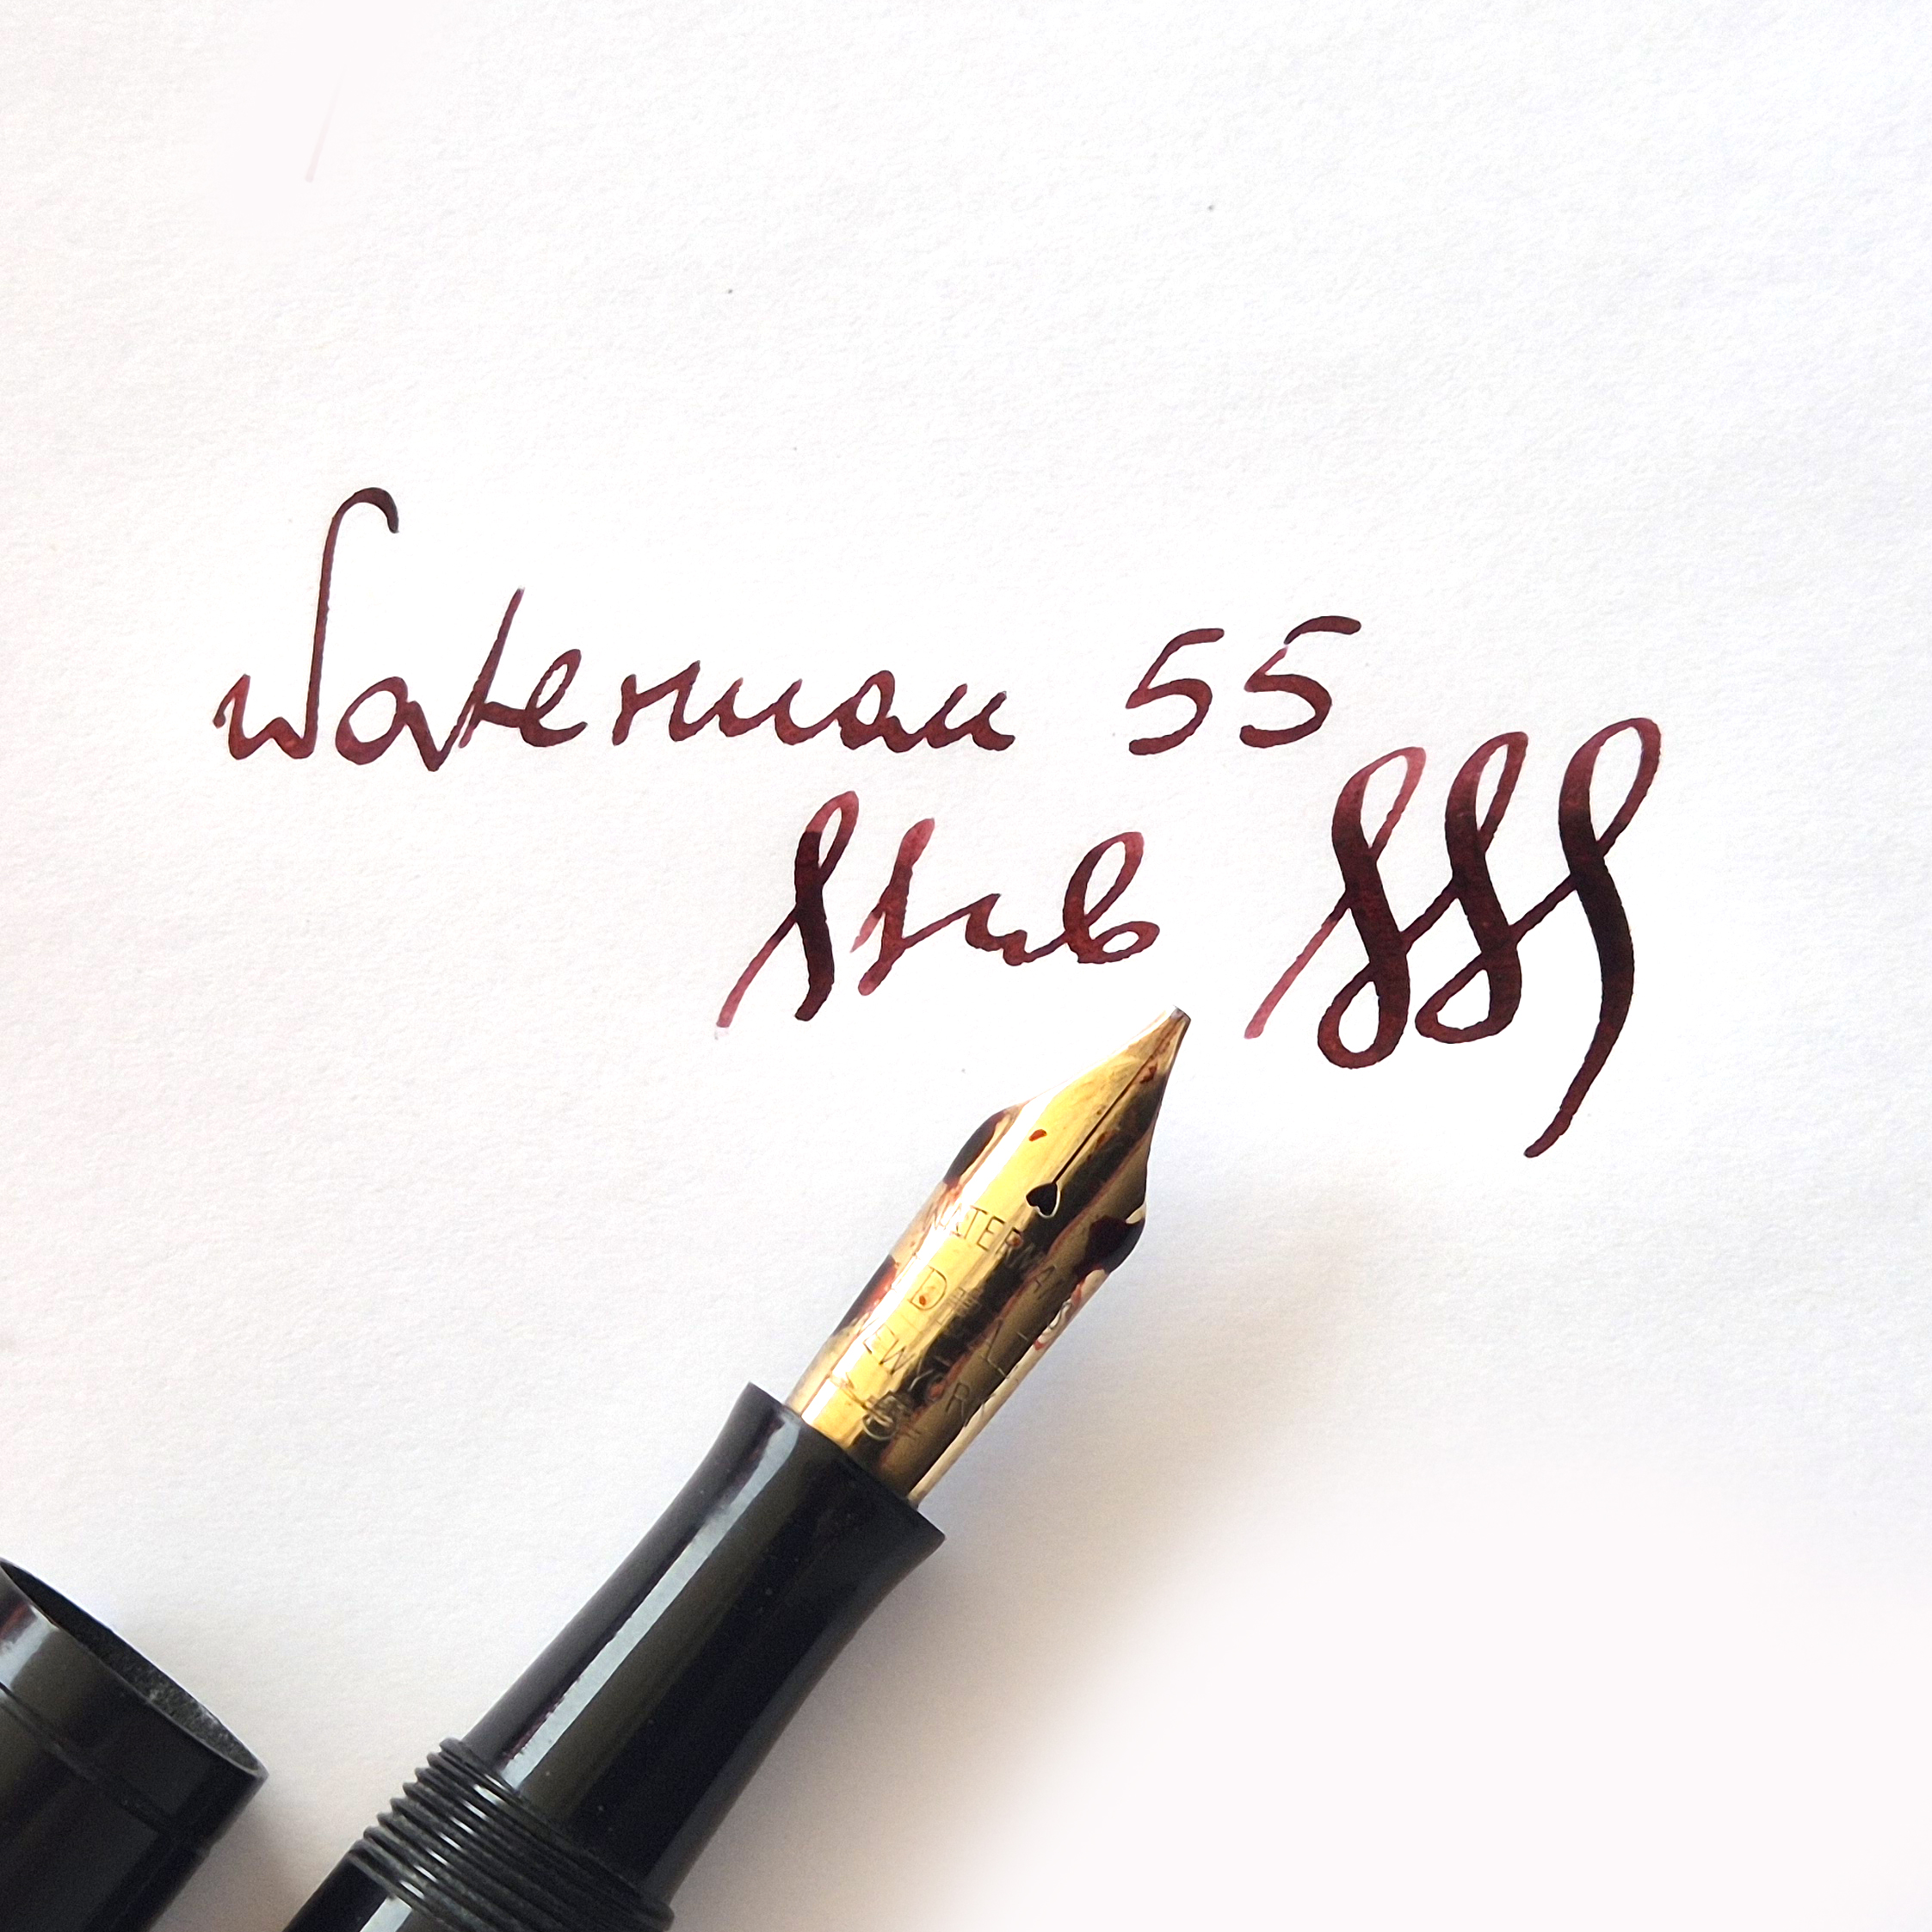 Waterman 55
Stub
WATERMA
IDEAL
NEW YORK
5